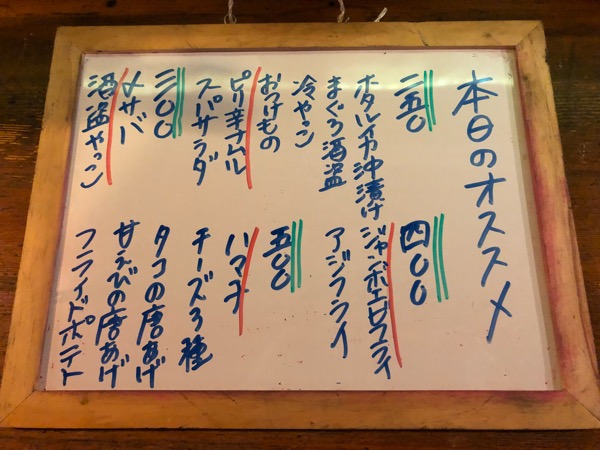 本日のオススメ
二五〇
ホタルイカ沖漬け
まぐろ酒盗
冷やっこ
おつけもの
ピリ辛ナムル
スパサラダ
三〇〇
〆サバ
酒盗やっこ
四〇〇
ジャンボエビフライ
アジフライ
五〇〇
ハマチ
チーズ3種
タコの唐あげ
甘えびの唐あげ
フライドポテト